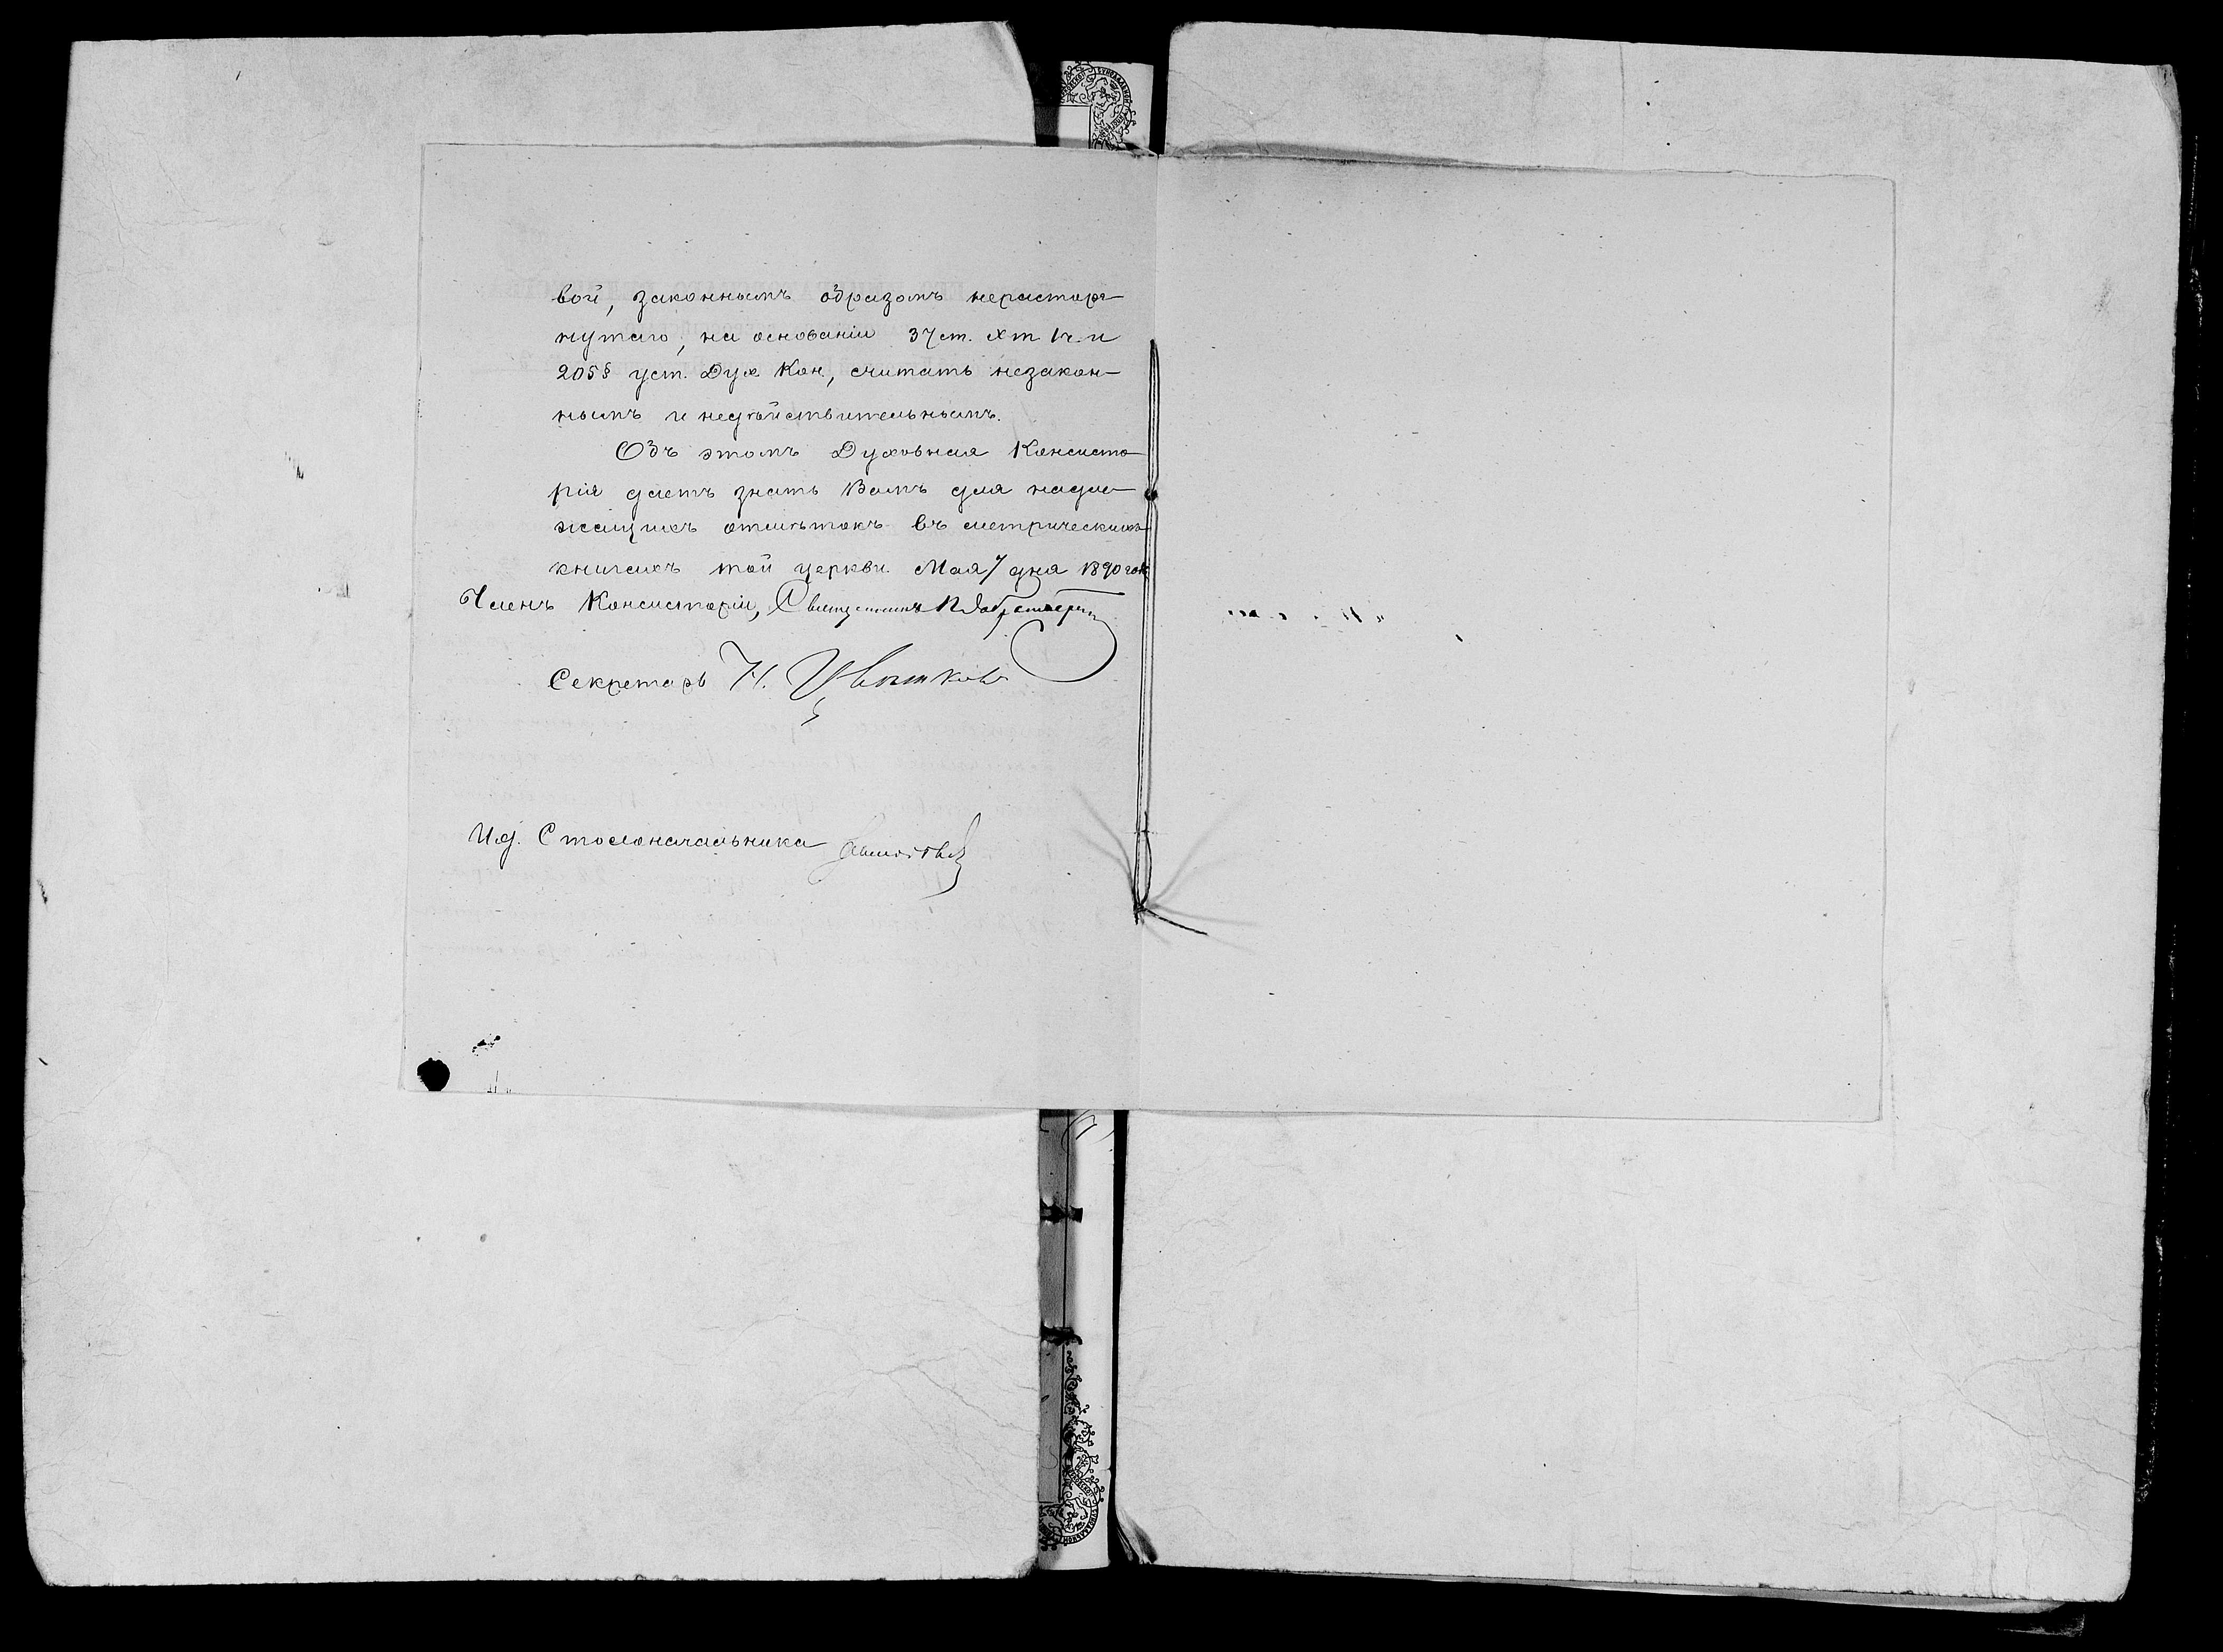 вой, законнымъ образомъ нерастор-
нутаго, на основаніи 37 ст. Х т 1 ч. и
205 § уст. Дух Кон, считать незакон-
нымъ и недѣйствительнымъ.
Объ этомъ Духовная Консисто-
рія даетъ знать Вамъ для надле-
жащихъ отмѣтокъ въ метрическихъ
книгахъ той церкви. Мая 7 дня 1890 года
Членъ Консисторіи, Священникъ
Секретарь Н. Цвѣтковъ
И.д. Столоначальника